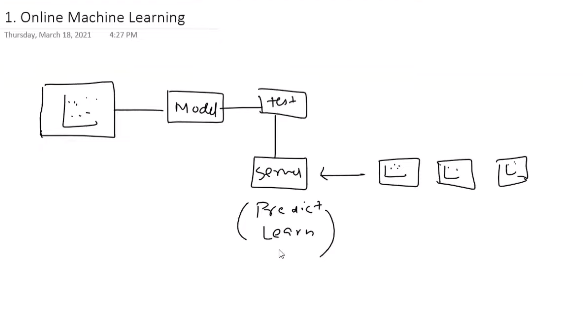 1. Online Machine Learning
Thursday, March 18, 2021 4:27 PM
Model
test
server
Predict
Learn